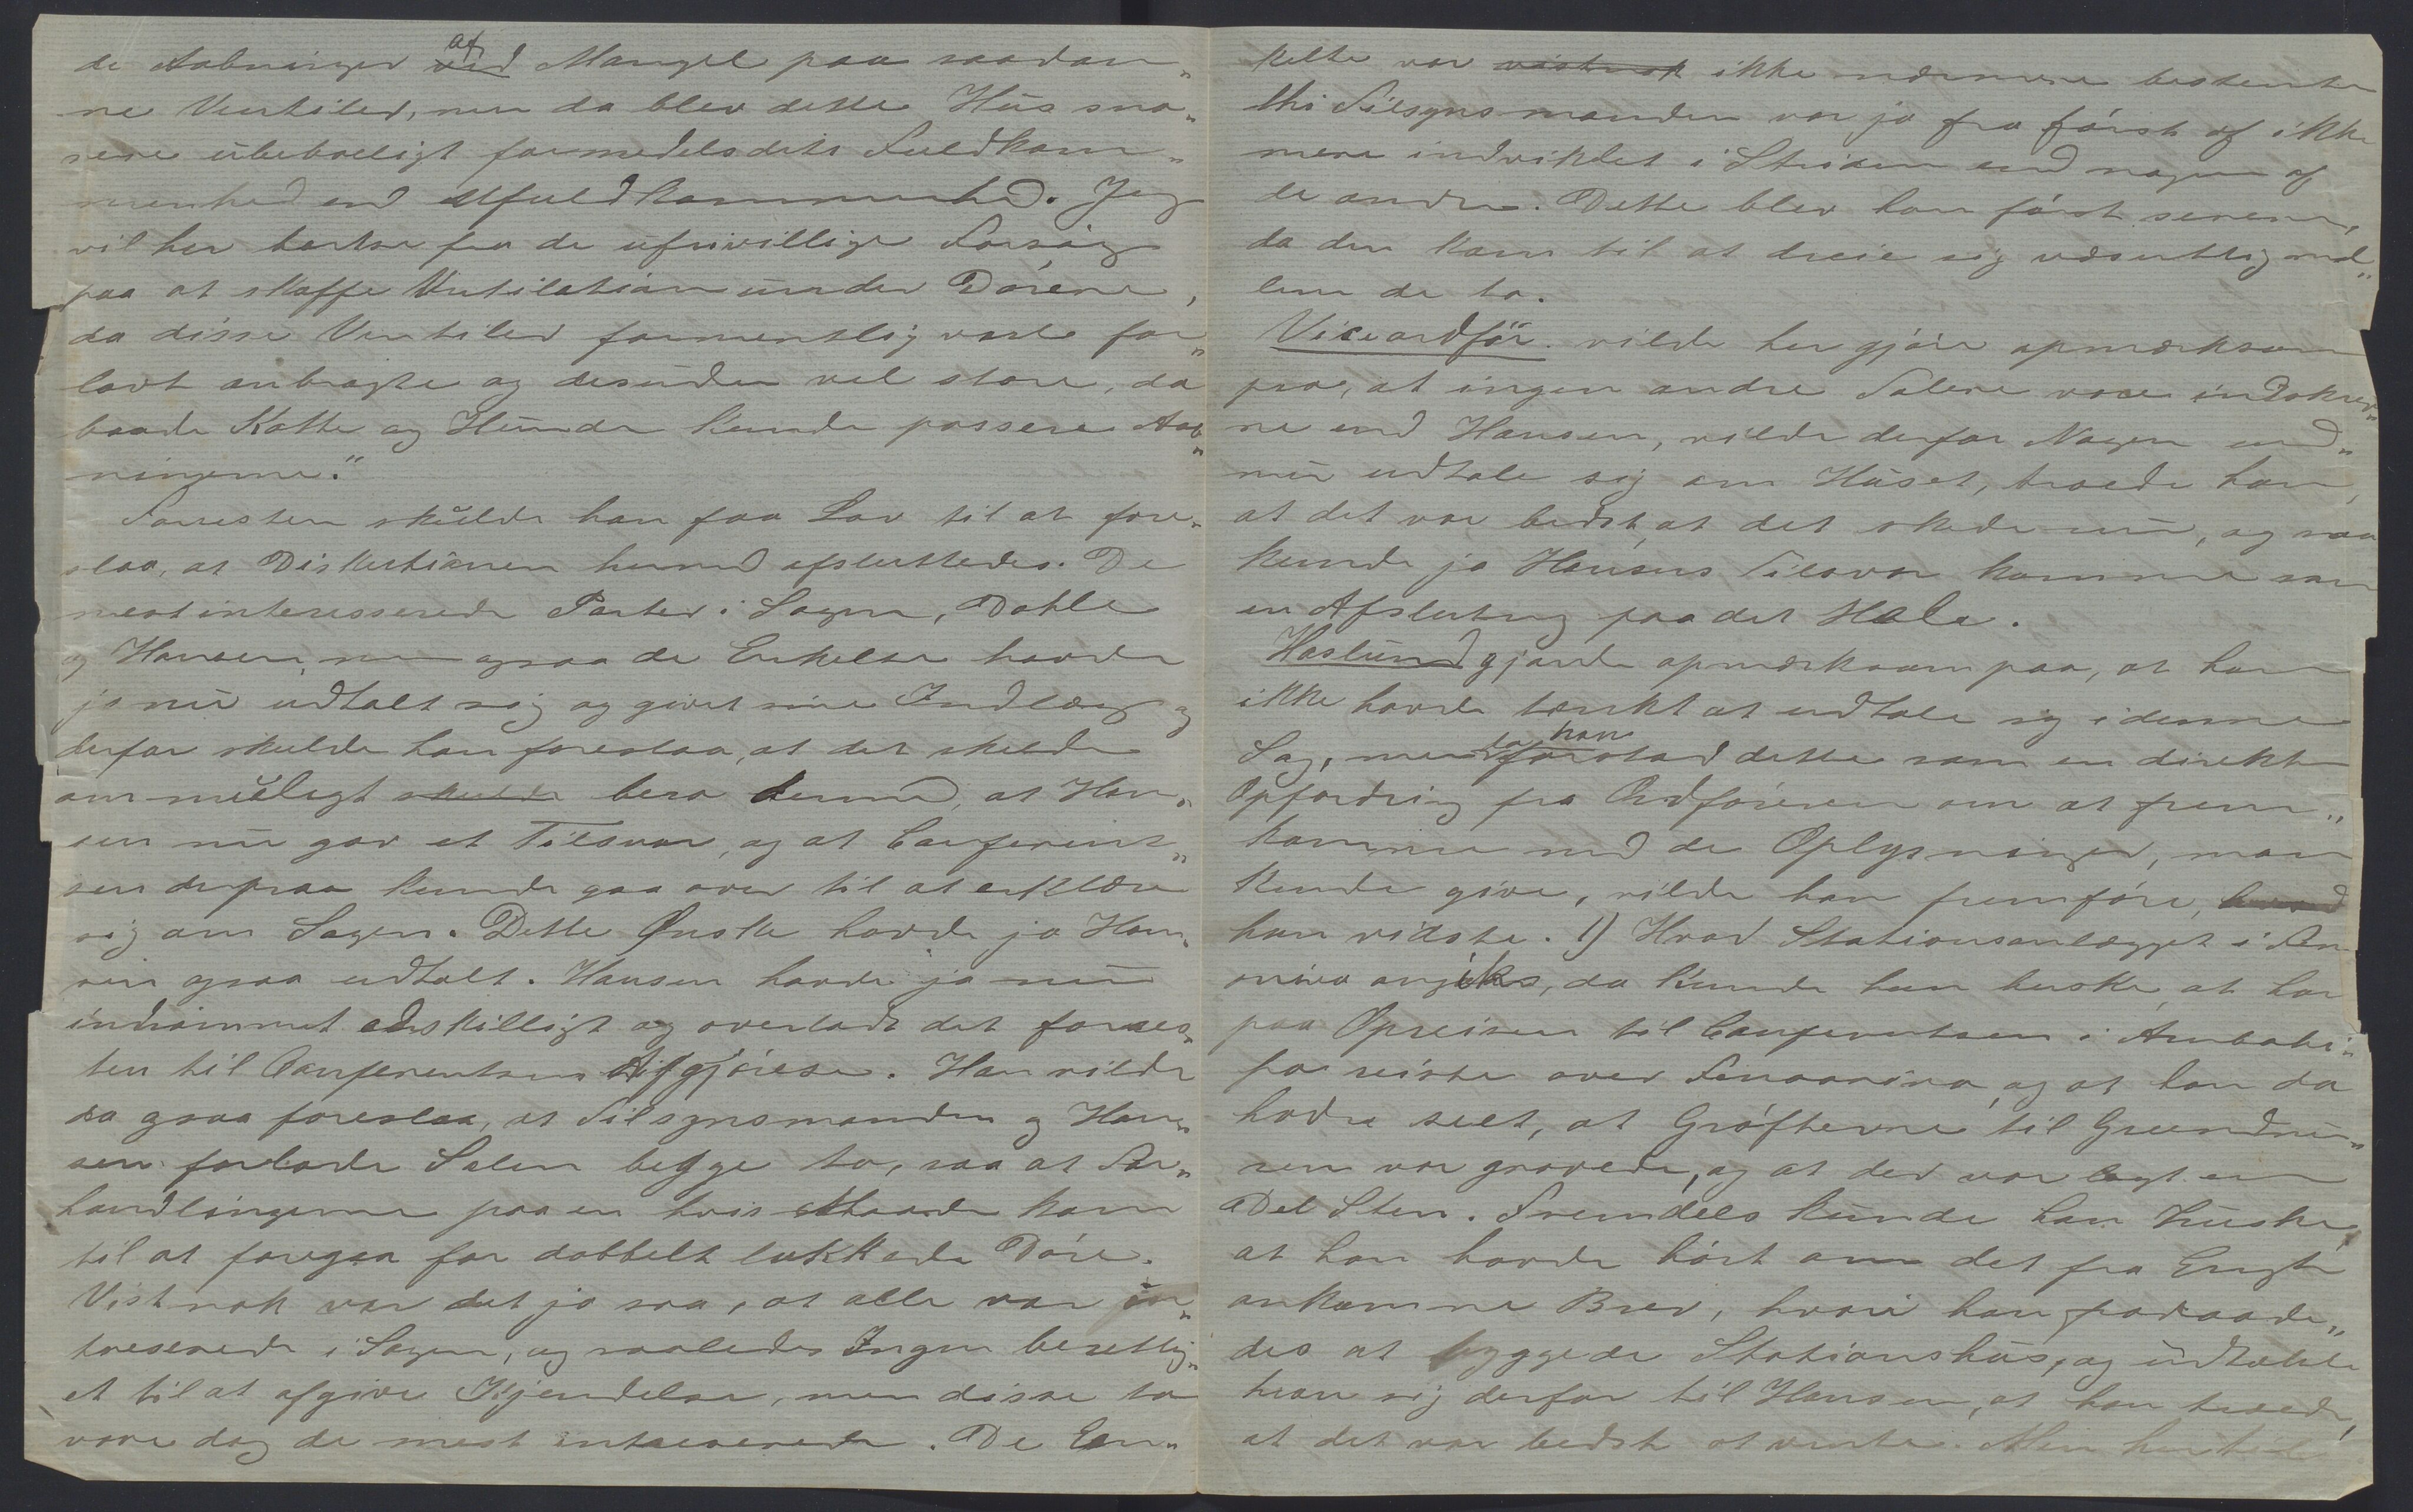 de Aabninger af Mangel paa saadan„
ne Ventiler, men da blev dette Hus sna„
rere ubeboeligt formedelst dets Fuldkom„
menhed end Ufuldkommenhed. Jeg
vil her bortse fra de ufrivillige Forsøg
paa at skaffe Ventilation under Dørene,
da disse Ventiler formentlig vare for„
lavt anbragte og desuden vel store, da
baade Katte og Hunde kunde passere Aab„
ningerne."
Forresten skulde han faa Lov til at fore„
slaa, at Diskutionen hermed afsluttedes. De
mest interesserede Parter i Sagen, Dahle
og Hansen, men ogsaa de Enkelte havde
jo nu udtalt sig og givet sine Indlæg og
derfor skulde han foreslaa, at det skulde
om muligt skulde bero herved, at Han„
sen nu gav et Tilsvar, og at Conferent„
sen derpaa kunde gaa over til at erklære
sig om Sagen. Dette Ønske havde jo Han„
sen ogsaa udtalt. Hansen havde jo nu
indrømmet adskilligt og overladt det forres„
ten til Conferentsens Afgjørelse. Han vilde
da ogsaa foreslaa, at Tilsynsmanden og Han„
sen forlode Salen begge to, saa at For„
handlingerne paa en hvis Maade kom
til at foregaa for dobbelt lukkede Døre.
Vistnok var det jo saa, at alle var in„
treserede i Sagen, og saaledes Ingen berettig„
et til at afgive Kjendelse, men disse to
vare dog de mest intreserede. De En„
kelte var vistnok ikke nærmere bestemte
thi Tilsynsmanden var jo fra først af ikke
mere indviklet i Striden end nogen af
de andre. Dette blev han først senere,
da den kom til at dreie sig væsentlig mel„
lem de to.
Viceordfør. vilde her gjøre opmærksom
paa, at ingen andre Talere vare indskrev„
ne end Hansen, vilde derfor Nogen end„
nu udtale sig om Huset, troede han,
at det var bedst, at det skede nu, og saa
kunde jo Hansens Tilsvar komme som
en Afslutning paa det Hele.
Haslund gjorde opmærksom paa, at han
ikke havde tænkt at udtale sig i denne
Sag, men da han forstod dette som en direkte
Opfordring fra Ordføreren om at frem„
komme med de Oplysninger, man
kunde give, vilde han fremføre, hvad
han vidste. 1) Hvad Stationsanlægget i Fen„
arivo angiks, da kunde han huske, at han
paa Opreisen til Conferentsen i Ambohi„
po reiste over Fenoarivo, og at han da
havde seet, at Grøfterne til Grundmu„
ren var gravede, og at der var lagt en
Del Sten. Fremdeles kunde han huske,
at han havde hørt om det fra Engh
ankomne Brev, hvori han fraraade„
des at bygge de Stationshus, og udtalte
han sig derfor til Hansen, at han troede,
at det var bedst at vente. Men hertil